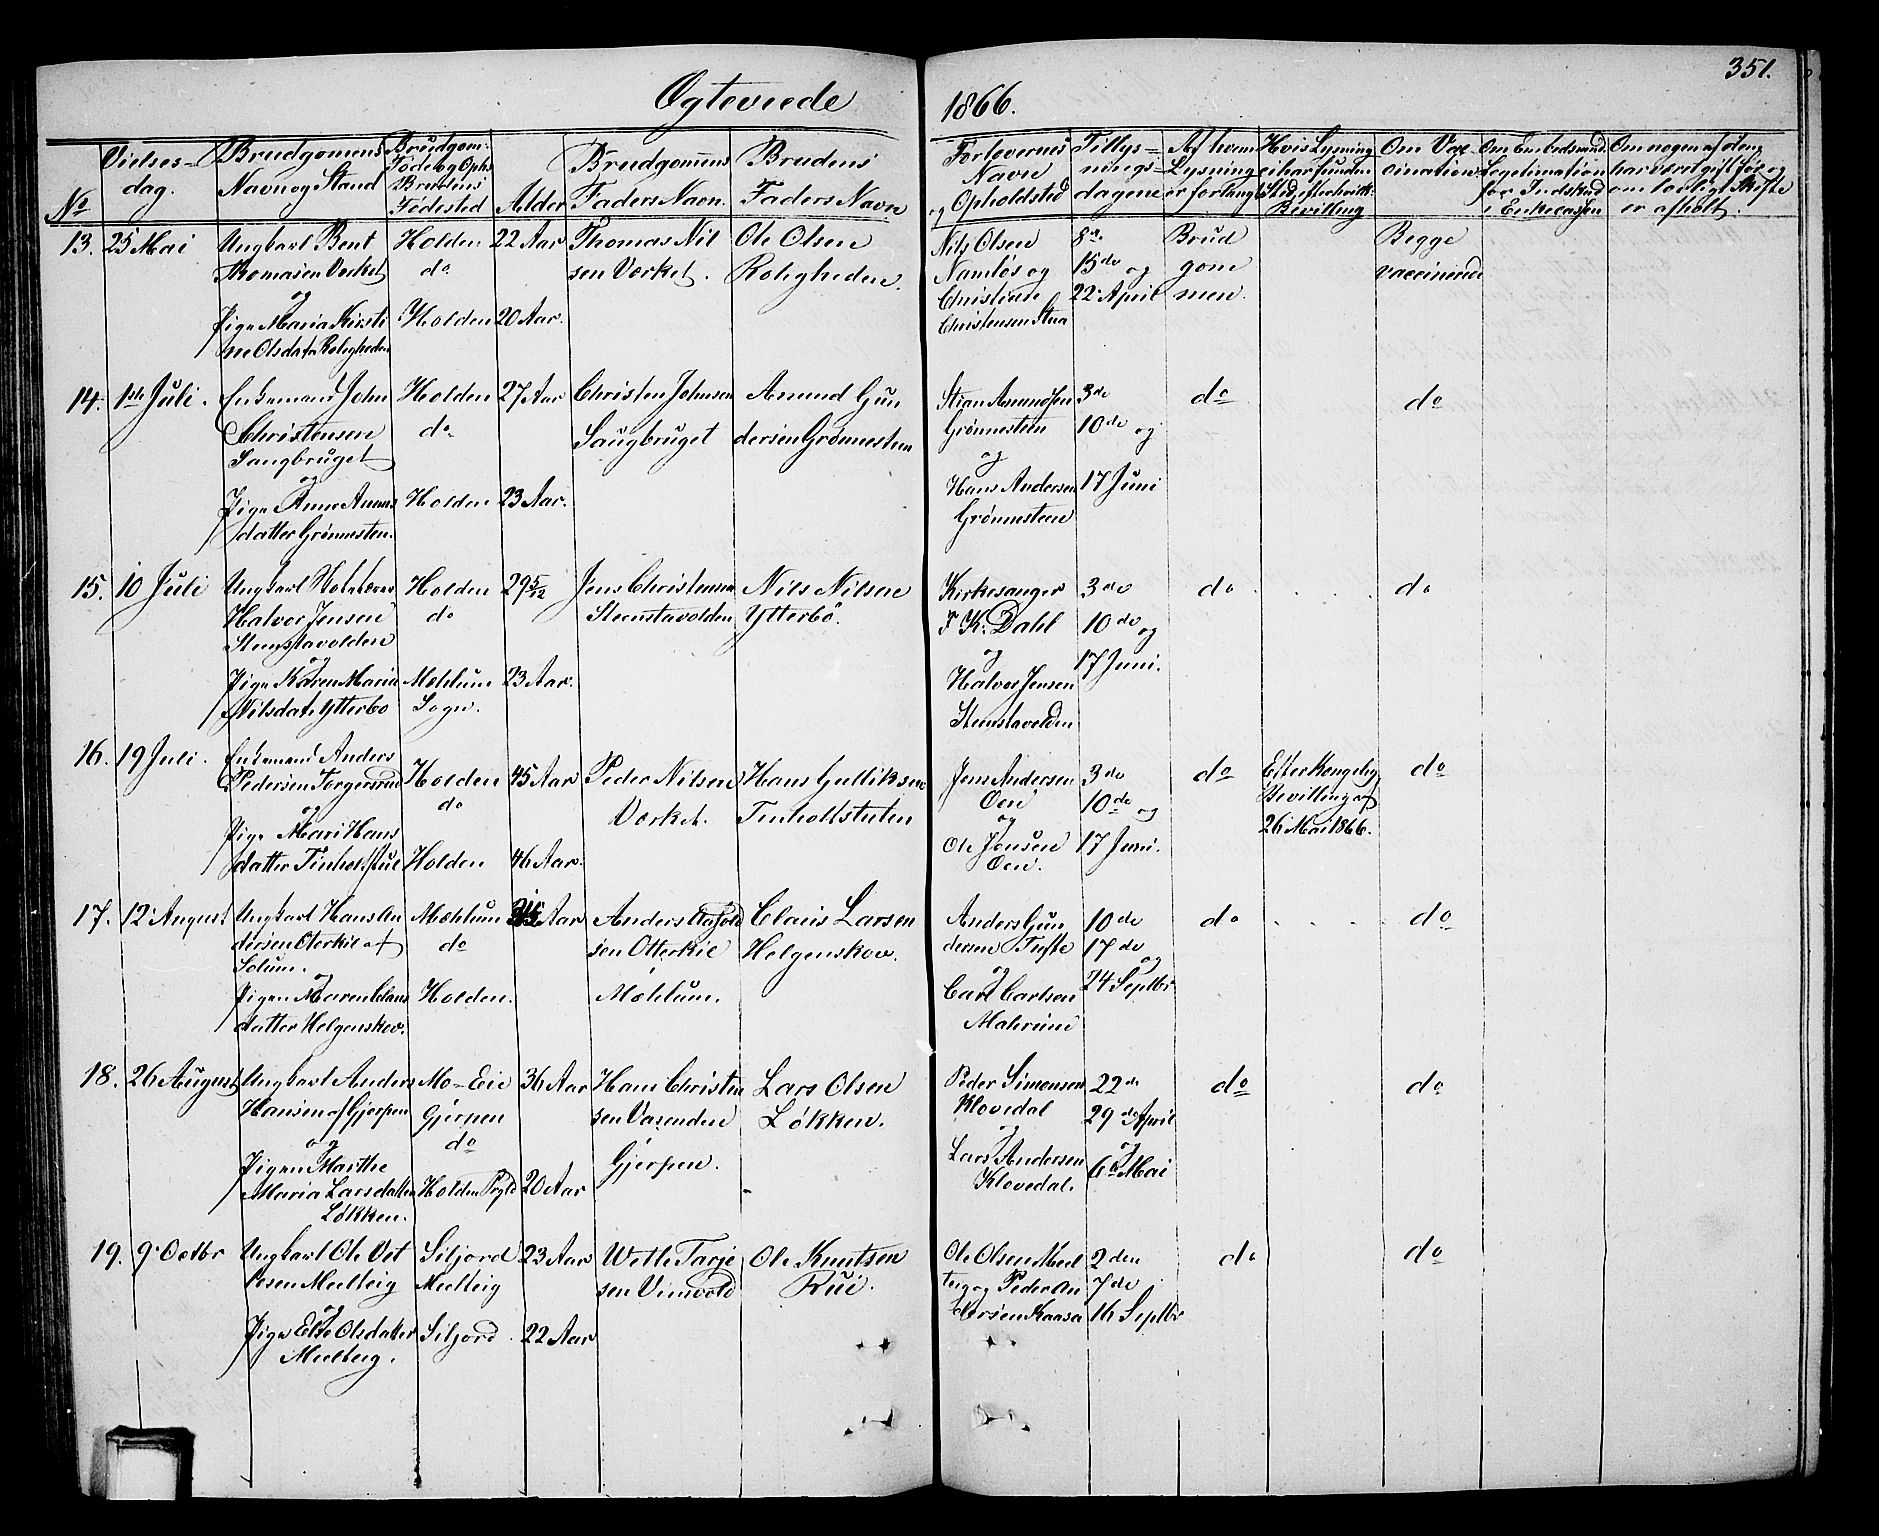 351.
Ægteviede 1866.
No
Vielses-
dag.
Brudgomens
Navn og Stand
Brudgom:
Føde og Oph:
Brudens
Fødested
Alder
Brudgomens
Faders Navn.
Brudens
Faders Navn
Forlovernes
Navne
og Opholdsted
Tillys-
nings-
dagene
Af hvem
Lysning
er forlangt
Hvis Lysning
ei har funden
Sted efter hvilk:
Bevilling
Om Vac-
cination
Om Embedsmænd
Legitimation
for Indskud
i Enkecassen
Om nogen af dem
har været gift før og
om lovligt Skifte
er afholt.
13. 25 Mai
Ungkarl Bent
Thomasen Værket
og
Pige Maria Kirsti
ne Olsdatr Roligheden
Holden
do
Holden
22 Aar
20 Aar.
Thomas Nil
sen Værket.
Ole Olsen
Roligheden.
Nils Olsen
Namløs og
Christian
Christensen
8de
15de og
22 April
Brud
gom
men.
Begge
vaccinerede
14. 1ste Juli.
Enkemand John
Christensen
Saugbruget
og
Pige Anne Amunds
datter Grønnesten.
Holden
do
Holden
27 Aar
23 Aar.
Christen Johnsen
Saugbruget
Amund Gun
dersen Grønnesteen
Stian Amundsen
Grønnesteen
og
Hans Andersen
Grønnesteen
3de
10de og
17 Juni
do
do
15. 10 Juli
Ungkarl
Halvor Jensen
Stenstavolden
og
Pige Karen Marie
Nilsdatr Ytterbø
Holden
do
Mælum
Sogn.
29 5/12
23 Aar.
Jens Christensen
Steenstavolden
Nils Nilsen
Ytterbø.
Kirkesanger
F K: Dahl
og
Halvor Jensen
Steenstavolden
3de
10de og
17 Juni.
do
do
16. 19 Juli.
Enkemand Anders
Pedersen Torgersrud
og
Pige Mari Hans
datter Tinholtstul
Holden
do
Holden
45 Aar
46 Aar.
Peder Nilsen
Værket.
Hans Gulliksen
Tinholtstulen
Jens Andersen
Oen
og
Ole Jensen
Oen.
3de
10de og
17 Juni.
do
Efter Kongelig
Bevilling af
26 Mai 1866.
do
17. 12 August
Ungkarl Hans An
dersen Oterkil af
Solum.
og
Pigen Maren Claus
datter Helgenskov.
Mæhlum
do
Holden.
Aar
Anders
sen Otterkil
Mæhlum.
Claus Larsen
Helgenskov.
Anders Gun
dersen Tufte
og
Carl Carlsen
10de
17de og
24 Septbr
do
do
18. 26 August
Ungkarl Anders
Hansen af Gjerpen
og
Pigen Marthe
Maria Larsdatter
Løkken.
Mo-Eie
Gjerpen
do
Holden Prgld
36 Aar
20 Aar
Hans Christen
sen
Gjerpen.
Lars Olsen
Løkken.
Peder Simensen
Klovedal
og
Lars Andersen
Klovedal.
22de
29de April
og
6te Mai
do
do
19. 9 Octbr
Ungkarl Ole Vet
lesen Meelteig
og
Pige Else Olsdatter
Meelteig.
Siljord
Meelteig
Siljord
23 Aar
22 Aar
Wetle Tarje
sen
Ole Knutsen
Rui.
Ole Olsen Meel
teig og Peder An
dersen Kaasa
2den
7de
16 Septbr
do
do